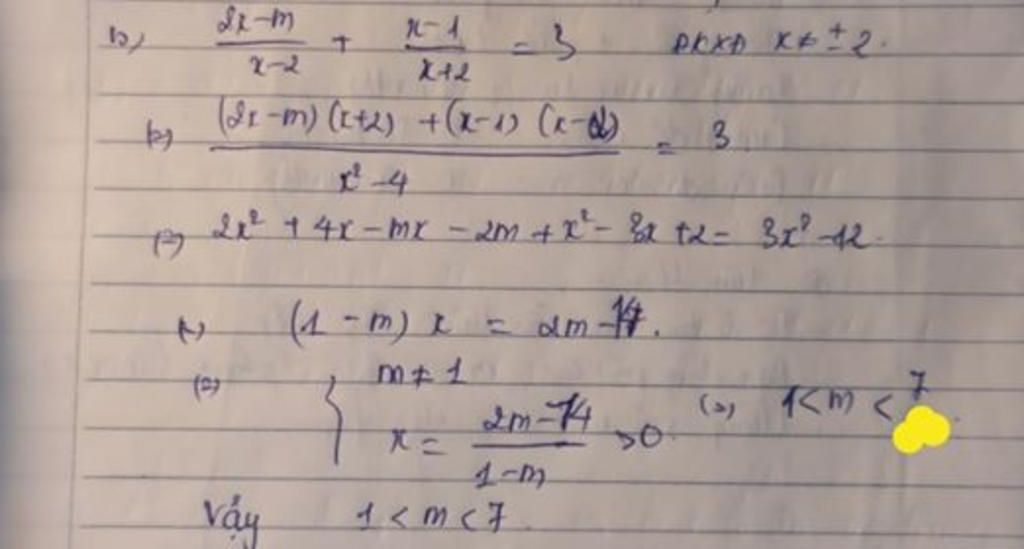 b) \frac{2x-m}{x-2} + \frac{x-1}{x+2} = 3 ĐKXĐ x ≠ ±2.
(=) \frac{(2x-m)(x+2) + (x-1)(x-2)}{x²-4} = 3
(=) 2x² + 4x - mx - 2m + x² - 3x + 2 = 3x² - 12.
(=) (1-m) x = 2m - 14.
(=) { m ≠ 1
x = \frac{2m-14}{1-m} > 0 (=) 1 < m < 7
Vậy 1 < m < 7.